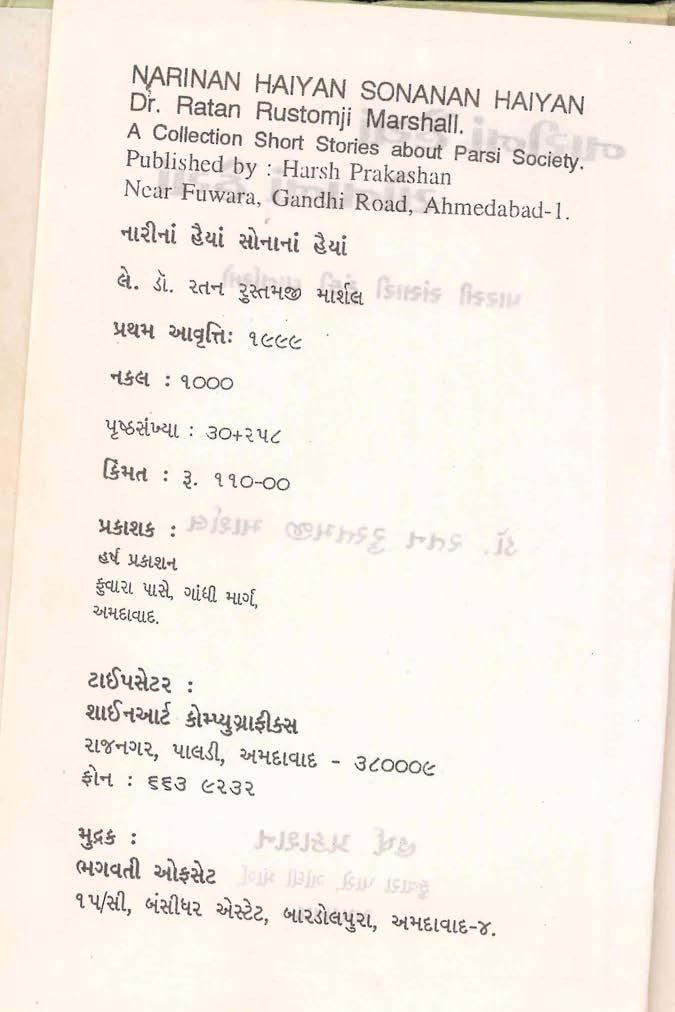 NARINAN HAIYAN SONANAN HAIYAN
Dr. Ratan Rustomji Marshall.
A Collection Short Stories about Parsi Society.
Published by : Harsh Prakashan
Near Fuwara, Gandhi Road, Ahmedabad-1.
નારીનાં હૈયાં સોનાનાં હૈયાં
લે. ડૉ. રતન રુસ્તમજી માર્શલ
પ્રથમ આવૃત્તિઃ ૧૯૯૯
નકલ : ૧૦૦૦
પૃષ્ઠસંખ્યા : ૩૦+૨૫૮
કિંમત : રૂ. ૧૧૦-૦૦
પ્રકાશક :
હર્ષ પ્રકાશન
ફુવારા પાસે, ગાંધી માર્ગ,
અમદાવાદ.
ટાઈપસેટર :
શાઈનઆર્ટ કોમ્પ્યુગ્રાફીક્સ
રાજનગર, પાલડી, અમદાવાદ - ૩૮૦૦૦૯
ફોન : ૬૬૩ ૯૨૩૨
મુદ્રક :
ભગવતી ઓફસેટ
૧૫/સી, બંસીધર એસ્ટેટ, બારડોલપુરા, અમદાવાદ-૪.